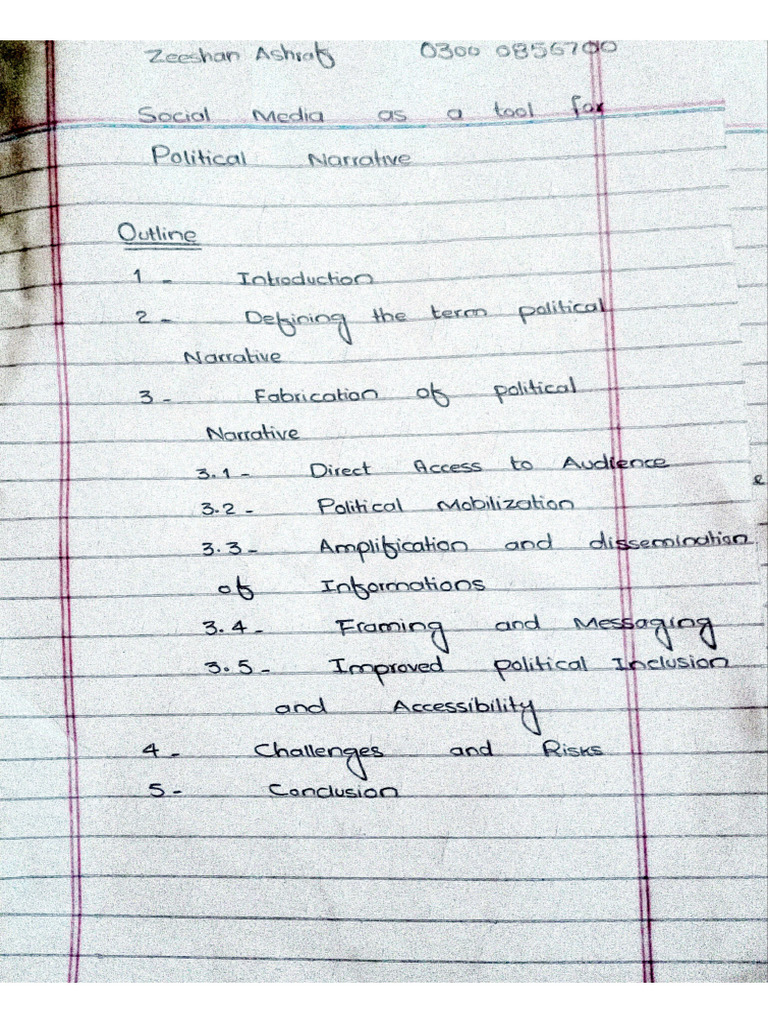 Zeeshan Ashraf 0300 0856700
Social Media as a tool for
Political Narrative
Outline
1 - Introduction
2 - Defining the term political
Narrative
3 - Fabrication of political
Narrative
3.1 - Direct Access to Audience
3.2 - Political Mobilization
3.3 - Amplification and dissemination
of Informations
3.4 - Framing and Messaging
3.5 - Improved political Inclusion
and Accessibility
4 - Challenges and Risks
5 - Conclusion